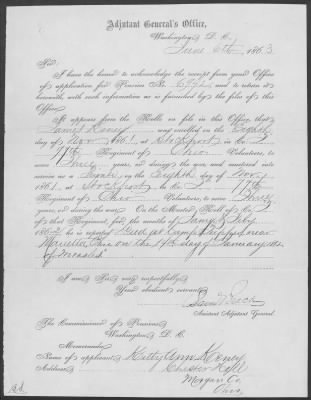 Adjutant General's Office,
Washington, D. C.
June 6th, 1863
Sir:
I have the honor to acknowledge the receipt from your Office
of application for Pension No. and to return it
herewith, with such information as is furnished by the files of this
Office.
It appears from the Rolls on file in this Office, that
James Keney was enrolled on the Eighth
day of Nov, 1861, at Stockport in Co.
Regiment of Ohio Volunteers, to serve
Three years, or during the war, and mustered into
service as a Private on the Eighth day of Nov,
1861, at Stockport, in Co.
Regiment of Ohio Volunteers, to serve Three
years, or during the war. On the Muster Roll of Co.
of that Regiment, for the months of Jany & Feby,
1862, he is reported Died at Camp near
Marietta Ohio on the 14th day of January 1862
of Measles
I am, Sir, very respectfully,
Your obedient servant,
Assistant Adjutant General.
The Commissioner of Pensions,
Washington, D. C.
Memoranda.
Name of applicant, Kitty Ann Keney
Address, Chester Hill
Morgan Co.
Ohio.